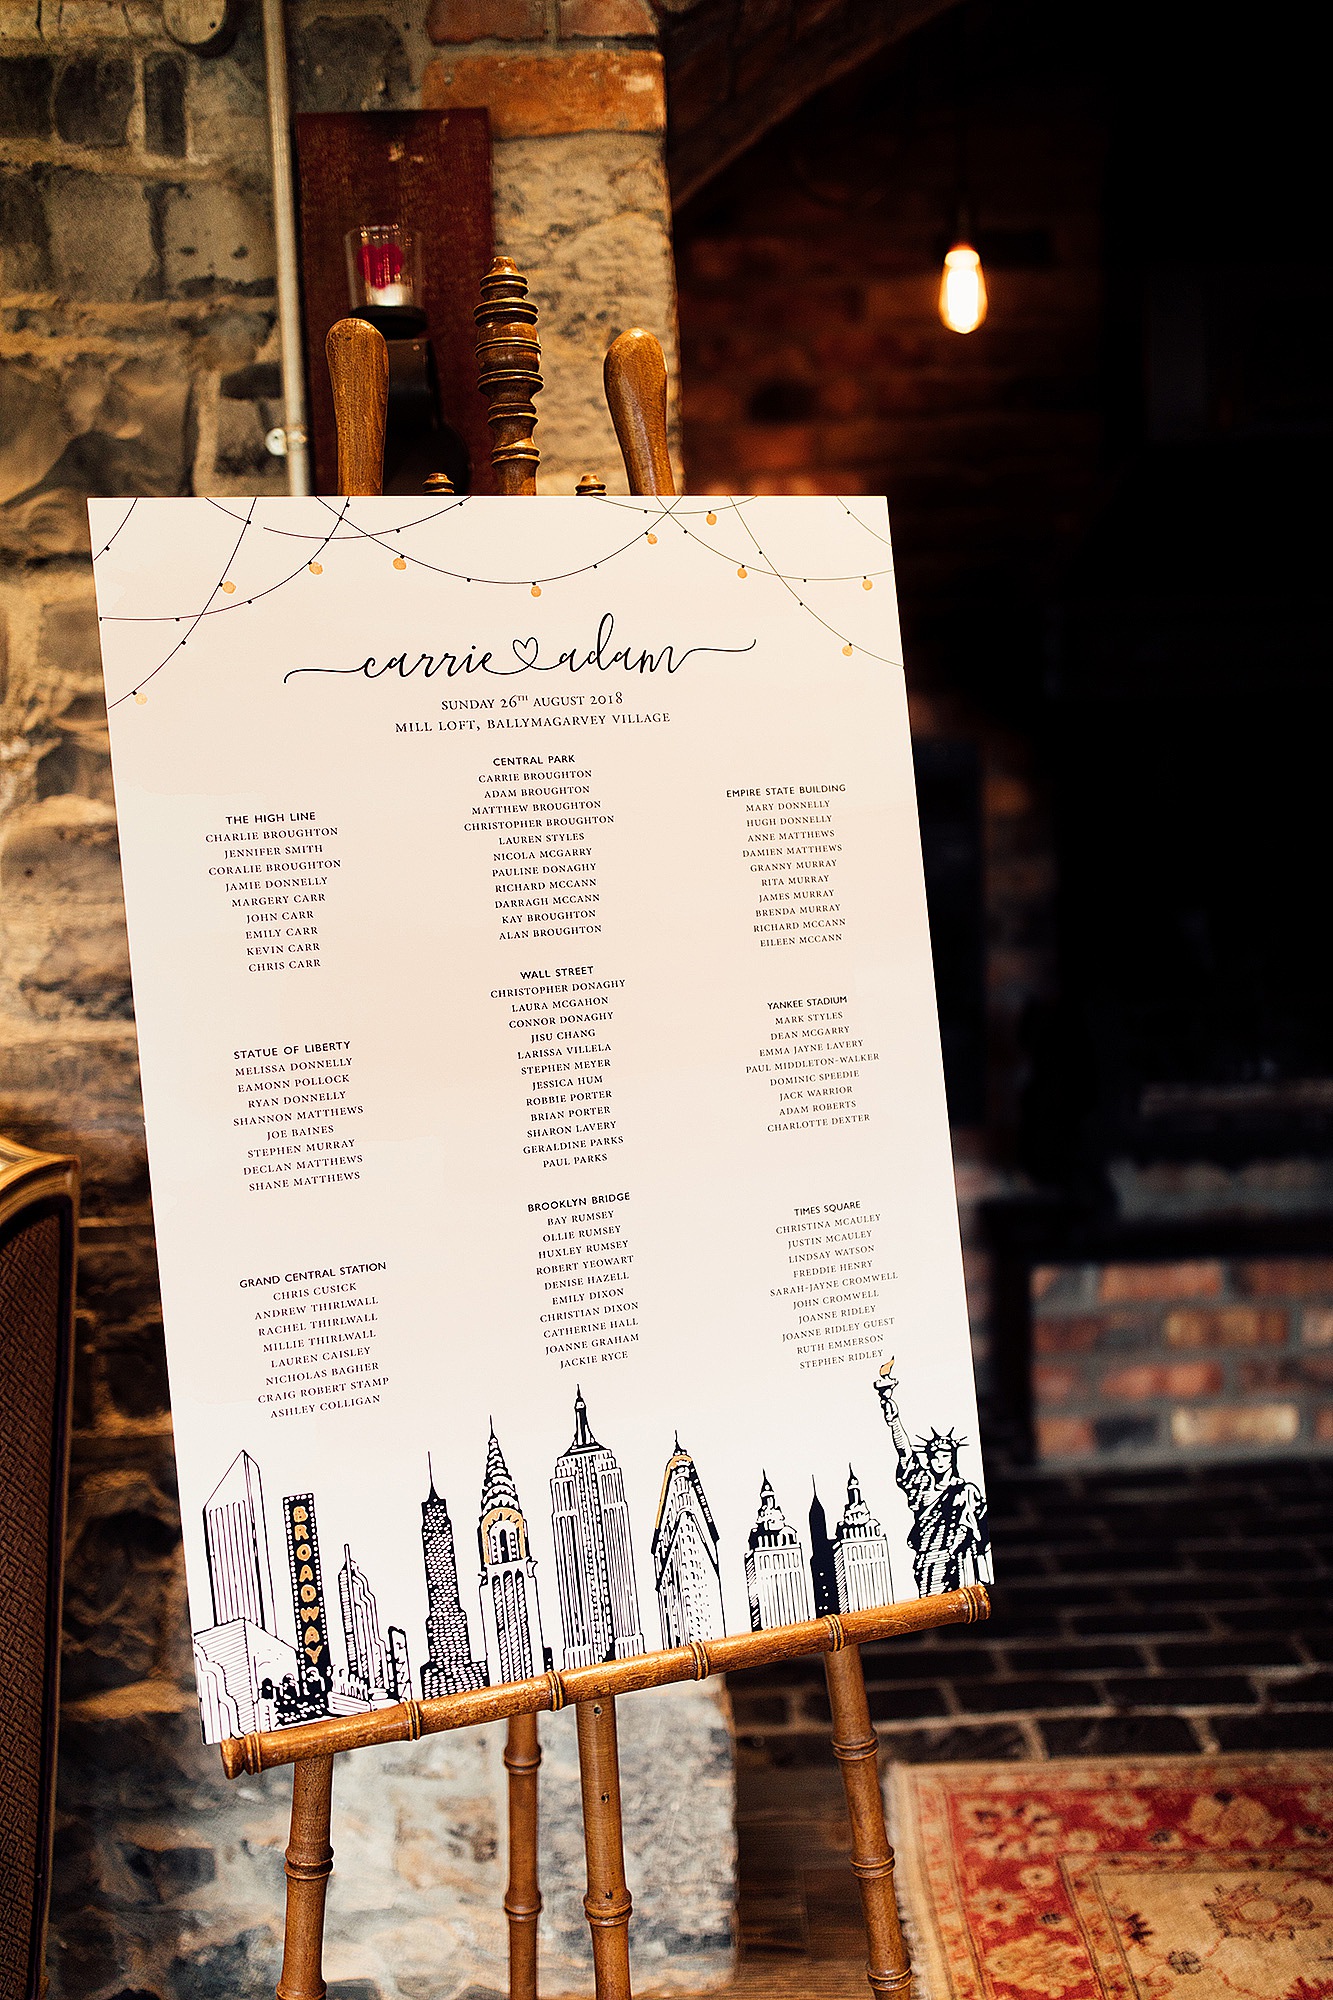 carrie adam
SUNDAY 26TH AUGUST 2018
MILL LOFT, BALLYMAGARVEY VILLAGE
THE HIGH LINE
CHARLIE BROUGHTON
JENNIFER SMITH
CORALIE BROUGHTON
JAMIE DONNELLY
MARGERY CARR
JOHN CARR
EMILY CARR
KEVIN CARR
CHRIS CARR
STATUE OF LIBERTY
MELISSA DONNELLY
EAMONN POLLOCK
RYAN DONNELLY
SHANNON MATTHEWS
JOE BAINES
STEPHEN MURRAY
DECLAN MATTHEWS
SHANE MATTHEWS
GRAND CENTRAL STATION
CHRIS CUSICK
ANDREW THIRLWALL
RACHEL THIRLWALL
MILLIE THIRLWALL
LAUREN CAISLEY
NICHOLAS BAGHER
CRAIG ROBERT STAMP
ASHLEY COLLIGAN
CENTRAL PARK
CARRIE BROUGHTON
ADAM BROUGHTON
MATTHEW BROUGHTON
CHRISTOPHER BROUGHTON
LAUREN STYLES
NICOLA MCGARRY
PAULINE DONAGHY
RICHARD MCCANN
DARRAGH MCCANN
KAY BROUGHTON
ALAN BROUGHTON
WALL STREET
CHRISTOPHER DONAGHY
LAURA MCGAHON
CONNOR DONAGHY
JISU CHANG
LARISSA VILLELA
STEPHEN MEYER
JESSICA HUM
ROBBIE PORTER
BRIAN PORTER
SHARON LAVERY
GERALDINE PARKS
PAUL PARKS
BROOKLYN BRIDGE
BAY RUMSEY
OLLIE RUMSEY
HUXLEY RUMSEY
ROBERT YEOWART
DENISE HAZELL
EMILY DIXON
CHRISTIAN DIXON
CATHERINE HALL
JOANNE GRAHAM
JACKIE RYCE
EMPIRE STATE BUILDING
MARY DONNELLY
HUGH DONNELLY
ANNE MATTHEWS
DAMIEN MATTHEWS
GRANNY MURRAY
RITA MURRAY
JAMES MURRAY
BRENDA MURRAY
RICHARD MCCANN
EILEEN MCCANN
YANKEE STADIUM
MARK STYLES
DEAN MCGARRY
EMMA JAYNE LAVERY
PAUL MIDDLETON-WALKER
DOMINIC SPEEDIE
JACK WARRIOR
ADAM ROBERTS
CHARLOTTE DEXTER
TIMES SQUARE
CHRISTINA MCAULEY
JUSTIN MCAULEY
LINDSAY WATSON
FREDDIE HENRY
SARAH-JAYNE CROMWELL
JOHN CROMWELL
JOANNE RIDLEY
JOANNE RIDLEY GUEST
RUTH EMMERSON
STEPHEN RIDLEY
BROADWAY